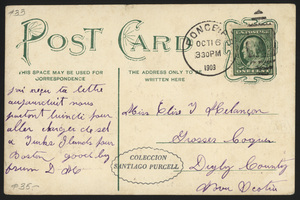 #33
POST CARD
THIS SPACE MAY BE USED FOR CORRESPONDENCE
THE ADDRESS ONLY TO BE
PONCE
OCT 16
3 30 PM
1909
ONE CENT
jai reçu ta lettre
aujourdhui nous
partont lundi pour
aller
Turks Islands pour
Boston good by
from
Miss Elise J Melançon
Grosses Coques
Digby County
Nova Scotia
COLECCION
SANTIAGO PURCELL
#35-